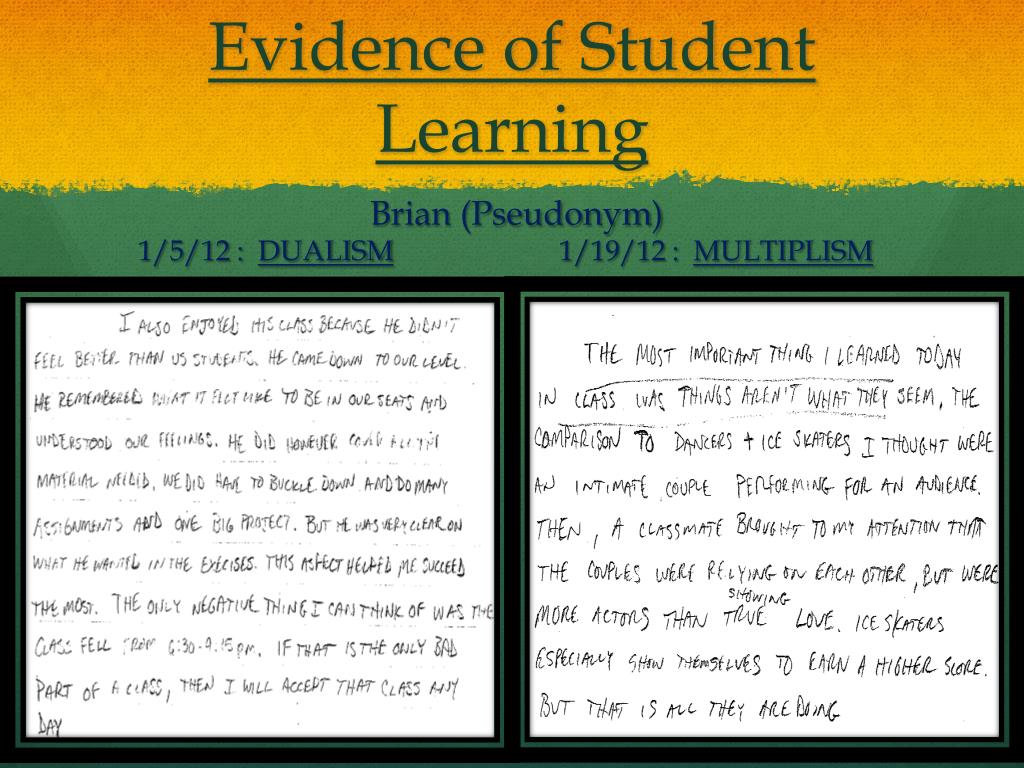 Evidence of Student
Learning
Brian (Pseudonym)
1/5/12 : DUALISM
1/19/12 : MULTIPLISM
I ALSO ENJOYED HIS CLASS BECAUSE HE DIDN'T
FEEL BETTER THAN US STUDENTS. HE CAME DOWN TO OUR LEVEL.
HE REMEMBERED WHAT IT FELT LIKE TO BE IN OUR SEATS AND
UNDERSTOOD OUR FEELINGS. HE DID HOWEVER COVER ALL THE
MATERIAL NEEDED. WE DID HAVE TO BUCKLE DOWN AND DO MANY
ASSIGNMENTS AND ONE BIG PROJECT. BUT HE WAS VERY CLEAR ON
WHAT HE WANTED IN THE EXERCISES. THIS ASPECT HELPED ME SUCCEED
THE MOST. THE ONLY NEGATIVE THING I CAN THINK OF WAS THE
CLASS FELL FROM 6:30-9:15pm. IF THAT IS THE ONLY BAD
PART OF A CLASS, THEN I WILL ACCEPT THAT CLASS ANY
DAY
THE MOST IMPORTANT THING I LEARNED TODAY
IN CLASS WAS THINGS AREN'T WHAT THEY SEEM, THE
COMPARISON TO DANCERS + ICE SKATERS I THOUGHT WERE
AN INTIMATE COUPLE PERFORMING FOR AN AUDIENCE.
THEN, A CLASSMATE BROUGHT TO MY ATTENTION THAT
THE COUPLES WERE RELYING ON EACH OTHER, BUT WERE
SHOWING
MORE ACTORS THAN TRUE LOVE. ICE SKATERS
ESPECIALLY SHOW THEMSELVES TO EARN A HIGHER SCORE.
BUT THAT IS ALL THEY ARE DOING